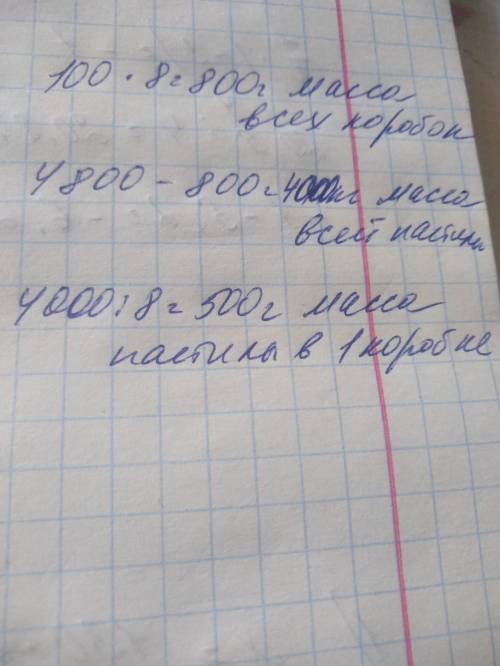 100 · 8 = 800г масса
всех коробок
4800 - 800 = 4000г масса
всей пастилы
4000 : 8 = 500г масса
пастилы в 1 коробке